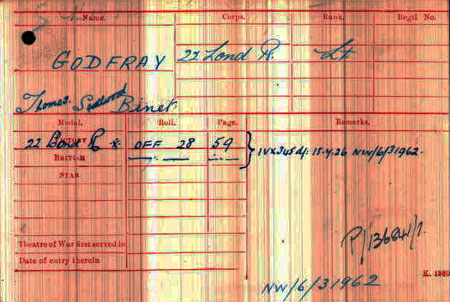 Name. Corps. Rank. Regtl No.
GODFRAY 22 Lond R. Lt
Thomas Binet
Medal. Roll. Page. Remarks.
22 Lond R * OFF 28 59
BRITISH IVX 15-4-26 NW/6/31962.
STAR
P/13684/1.
Theatre of War first served in
Date of entry therein
K. 1380
NW/6/31962